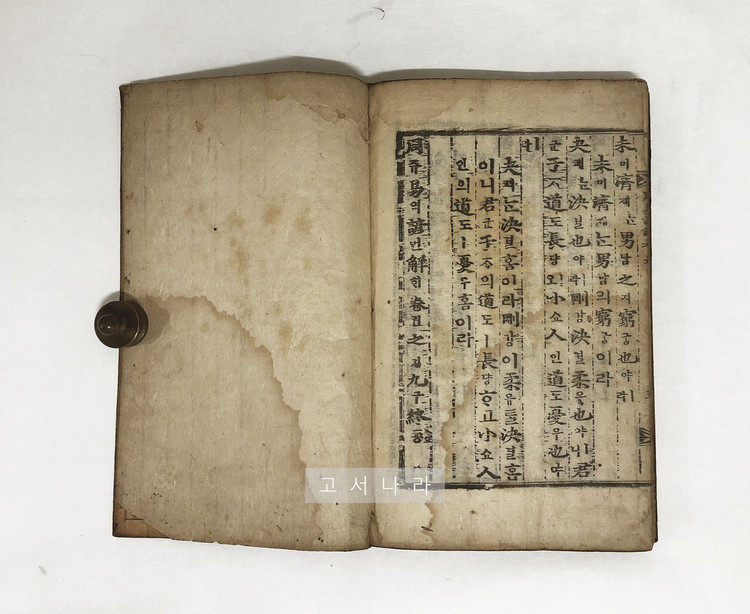 未미濟졔ᄂᆞᆫ男남之지窮궁也야ㅣ라
未미濟졔ᄂᆞᆫ男남의窮궁이라
夬쾌ᄂᆞᆫ決결也야ㅣ라剛강決결柔유也야ㅣ니君
군子ᄌᆞ道도長댱小쇼人인道도憂우也야
ㅣ라
夬쾌ᄂᆞᆫ決결홈이라剛강이柔유ᄅᆞᆯ決결홈
이니君군子ᄌᆞ의道도ㅣ長댱ᄒᆞ고小쇼人
인의道도ㅣ憂우홈이라
周쥬易역諺언解ᄒᆡ卷권之지九구終죵
고서나라